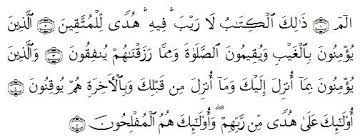 الٓمٓ ۝١ ذَٰلِكَ ٱلْكِتَٰبُ لَا رَيْبَ ۛ فِيهِ ۛ هُدًى لِّلْمُتَّقِينَ ۝٢ ٱلَّذِينَ
يُؤْمِنُونَ بِٱلْغَيْبِ وَيُقِيمُونَ ٱلصَّلَوٰةَ وَمِمَّا رَزَقْنَٰهُمْ يُنفِقُونَ ۝٣ وَٱلَّذِينَ
يُؤْمِنُونَ بِمَآ أُنزِلَ إِلَيْكَ وَمَآ أُنزِلَ مِن قَبْلِكَ وَبِٱلْءَاخِرَةِ هُمْ يُوقِنُونَ ۝٤
أُو۟لَٰٓئِكَ عَلَىٰ هُدًى مِّن رَّبِّهِمْ ۖ وَأُو۟لَٰٓئِكَ هُمُ ٱلْمُفْلِحُونَ ۝٥